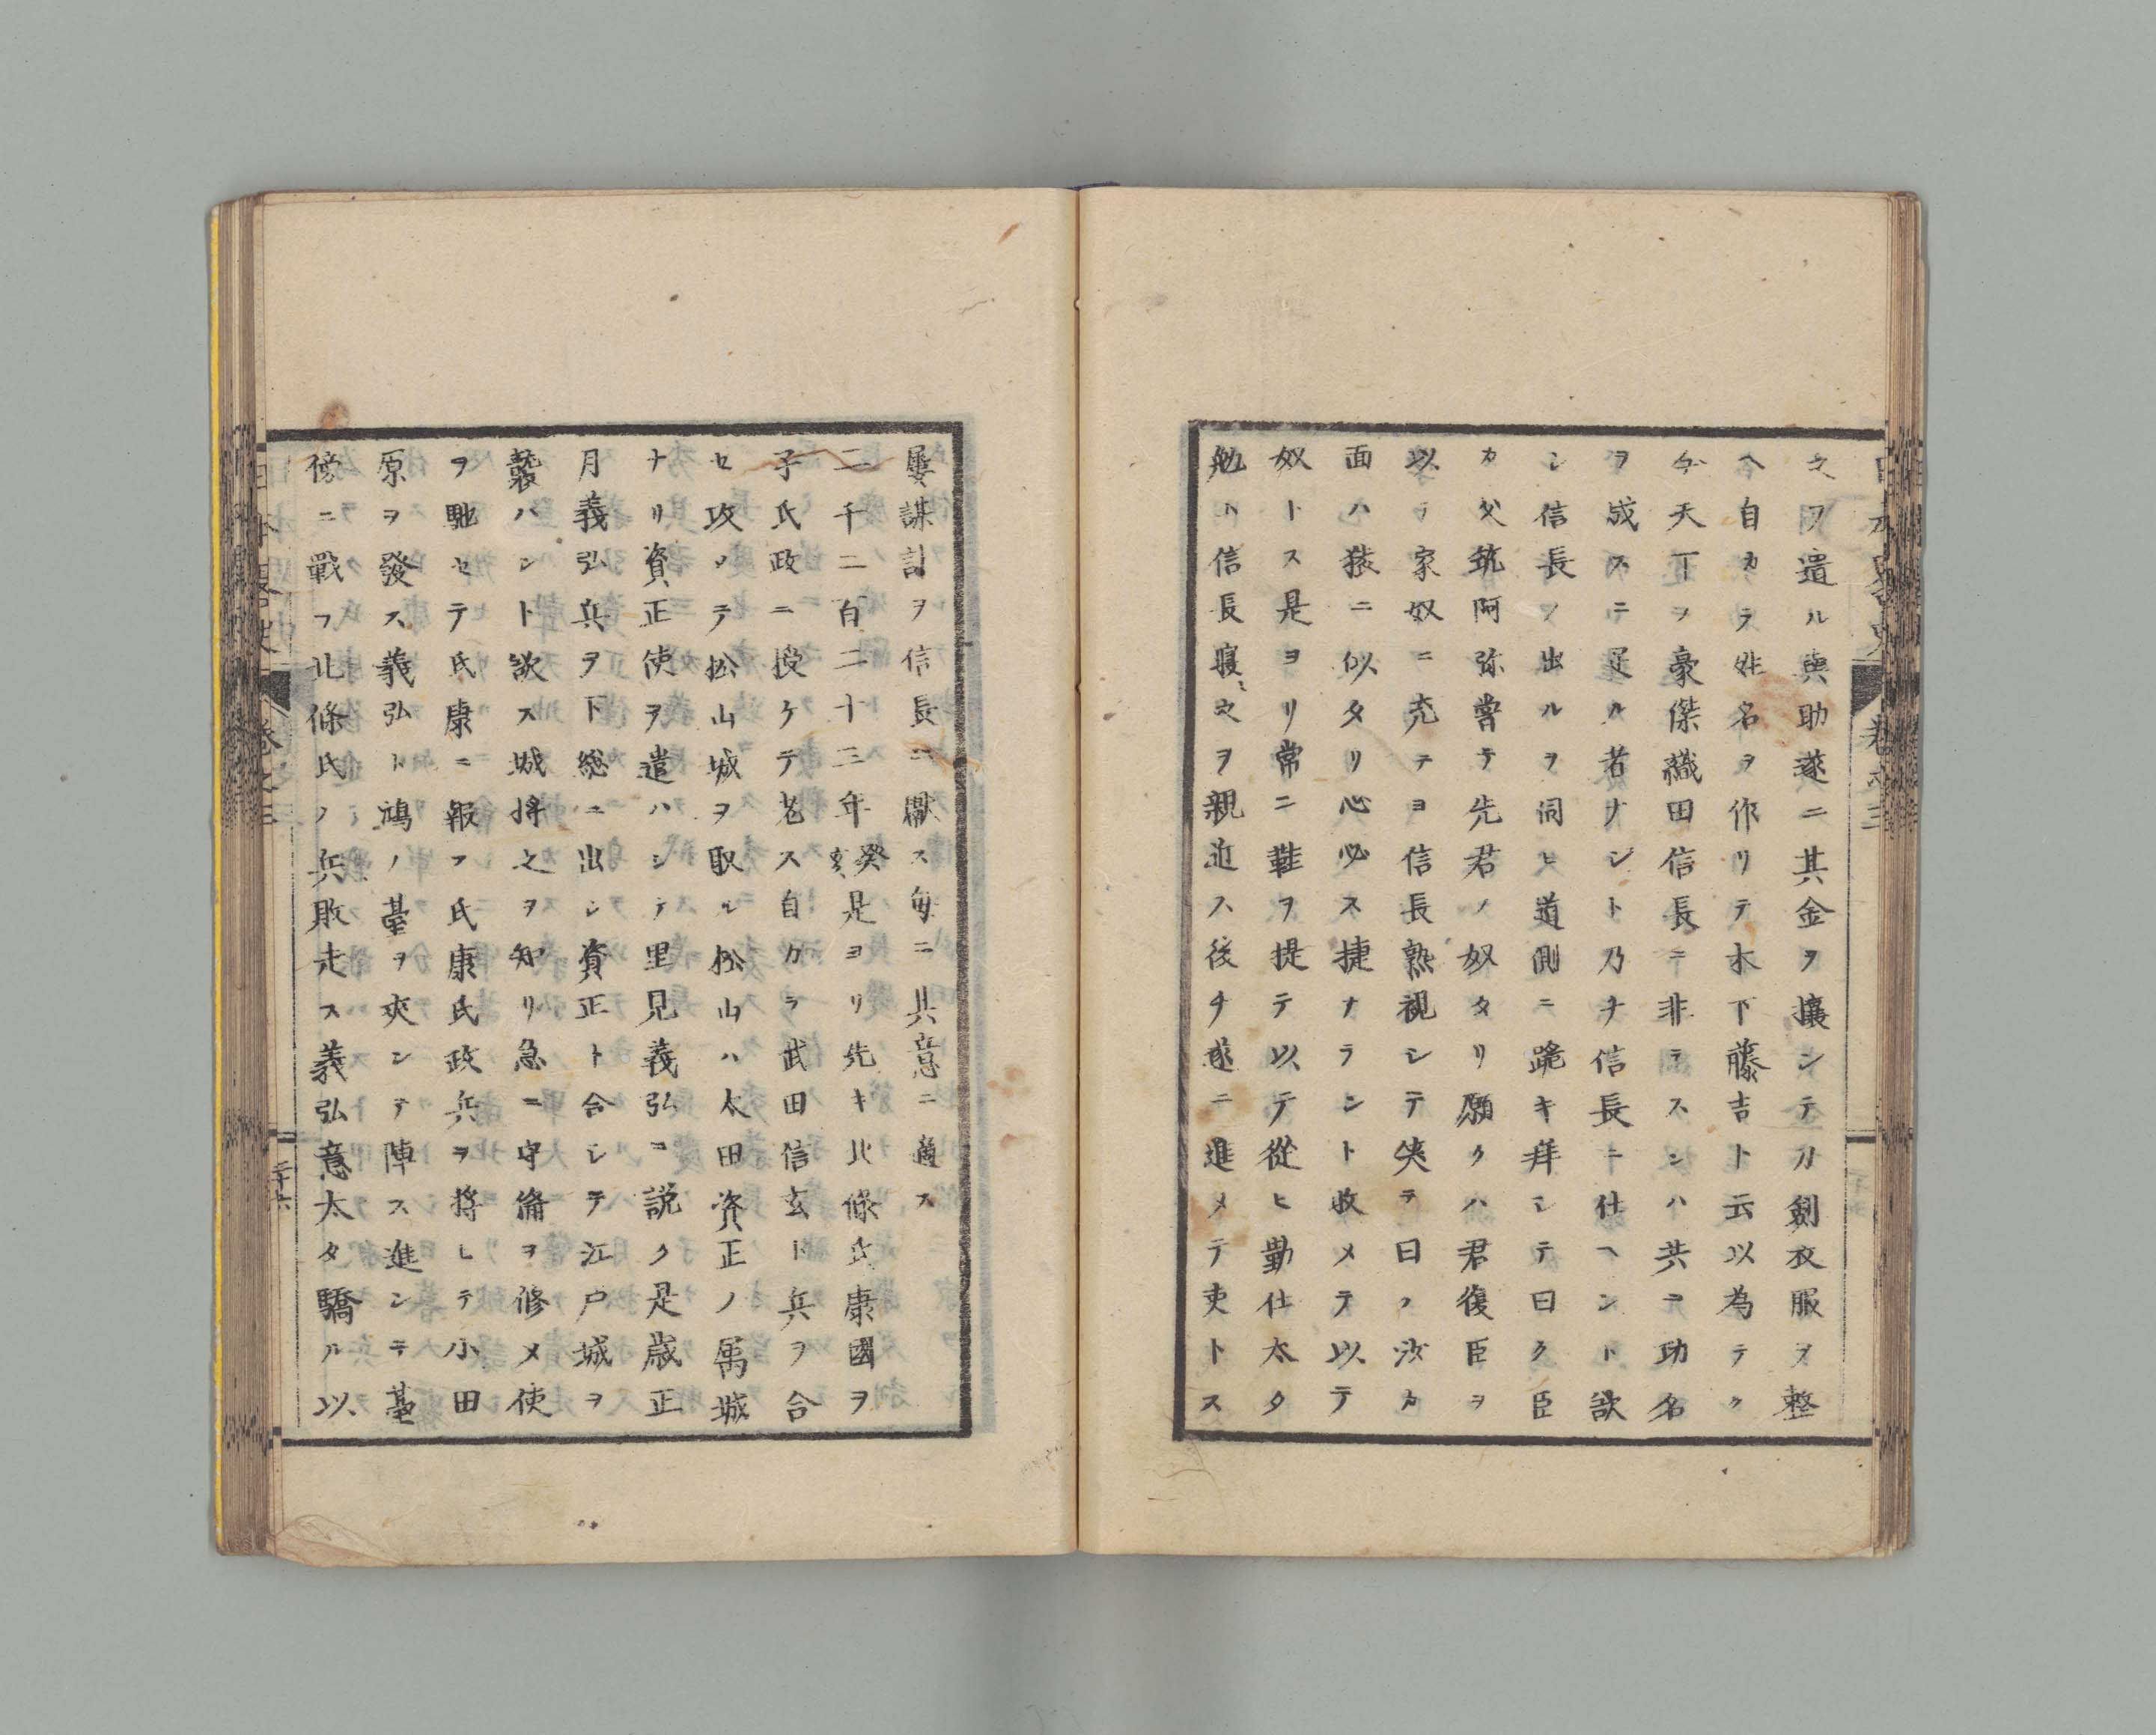 之ヲ遣ル與助遂ニ其金ヲ攘ンテ刀劍衣服ヲ整
ヘ自カラ姓名ヲ作リテ木下藤吉ト云以為テク
今天下ノ豪傑織田信長ニ非テスンハ共ニ功名
ヲ成スニ足ル者ナシト乃チ信長ニ仕ヘント欲
シ信長ノ出ルヲ伺ヒ道側ニ跪キ拜シテ曰ク臣
カ父筑阿弥嘗テ先君ノ奴タリ願クハ君復臣ヲ
以テ家奴ニ充テヨ信長熟視シテ笑テ曰ク汝カ
面ハ猿ニ似タリ心必ス捷ナラント收メテ以テ
奴トス是ヨリ常ニ鞋ヲ提テ以テ從ヒ勤仕太タ
勉ト信長寖〻之ヲ親近ス後チ遂ニ進メテ吏トス
屢謀計ヲ信長ニ獻ス毎ニ其意ニ適ス
二千二百二十三年癸亥是ヨリ先キ北條氏康國ヲ
子氏政ニ授ケテ老ス自カラ武田信玄ト兵ヲ合
セ攻メテ松山城ヲ取ル松山ハ太田資正ノ属城
ナリ資正使ヲ遣ハシテ里見義弘ニ説ク是歳正
月義弘兵ヲ下総ニ出シ資正ト合シテ江戸城ヲ
襲ハント欲ス城將之ヲ知リ急ニ守備ヲ修メ使
ヲ馳セテ氏康ニ報ス氏康氏政兵ヲ將ヒテ小田
原ヲ發ス義弘ト鴻ノ臺ヲ夾ンテ陣ス進ンテ臺
傍ニ戰フ北條氏ノ兵敗走ス義弘意太タ驕ル以
日本畧史
卷之三
二十六